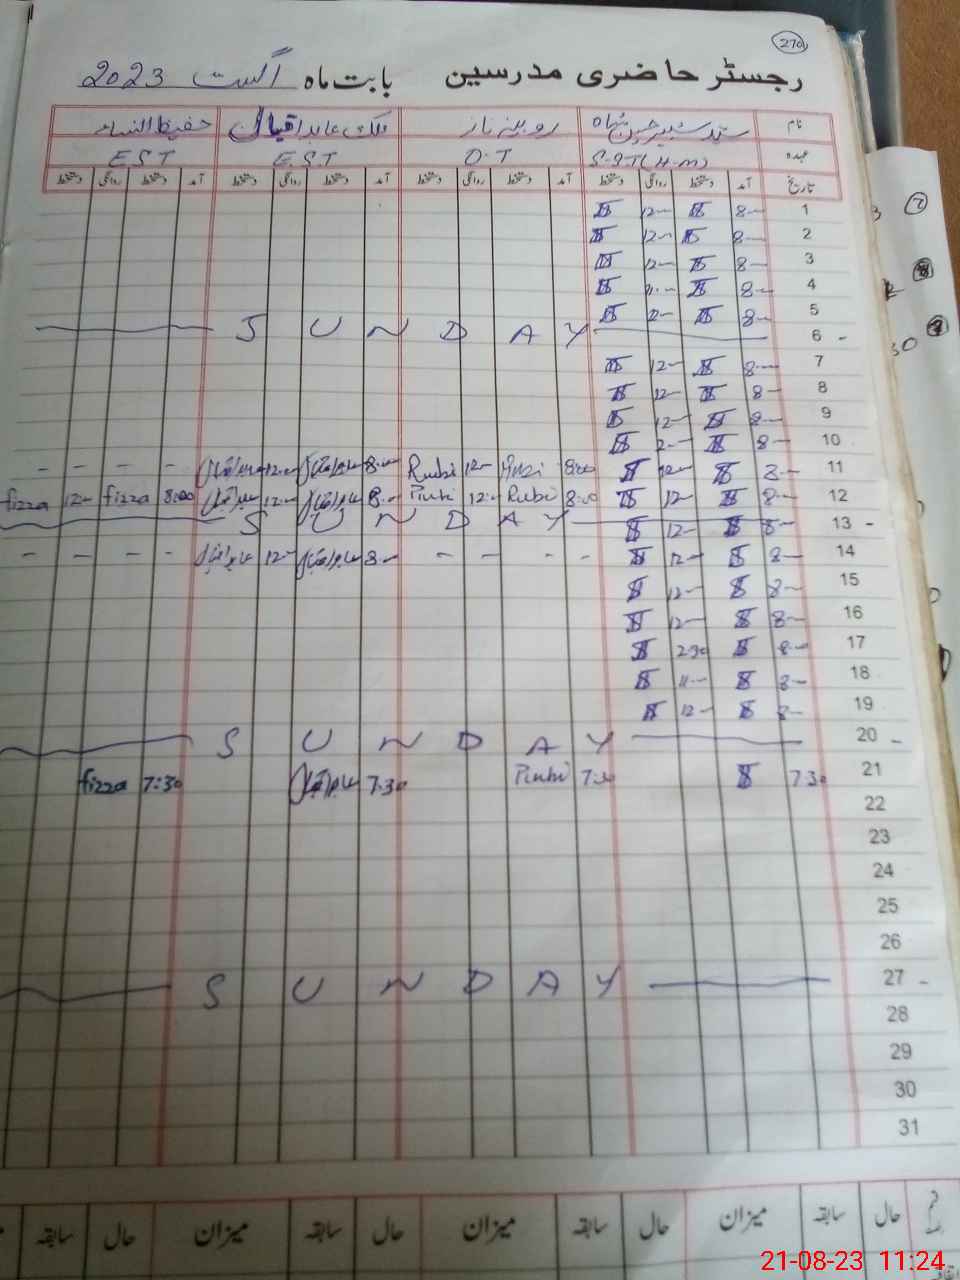 270
رجسٹر حاضری مدرسین بابت ماه اگست 2023
نام سید شبیر حسین شاہ روبینہ ناز ملک عابد اقبال حفیظ النساء
عہدہ S.ST(H.M) O.T E.S.T E.S.T
تاریخ آمد دستخط روانگی دستخط آمد دستخط روانگی دستخط آمد دستخط روانگی دستخط آمد دستخط روانگی دستخط
1 8- 12-
2 8- 12-
3 8- 12-
4 8-
5 8-
6 - SUNDAY
7 8- 12-
8 8- 12-
9 8- 12-
10 8-
11 8- 12- 8:00 Rubi 12- Rubi 8- عابد اقبال 12- عابد اقبال - - - -
12 8- 12- 8:00 Rubi 12- Rubi 8- عابد اقبال 12- عابد اقبال 8:00 fizza 12- fizza
13 - 8- 12- SUNDAY
14 8- 12- - - - - 8- عابد اقبال 12- عابد اقبال - - - -
15 8- 12-
16 8- 12-
17 8- 2:30
18 8- 11-
19 8- 12-
20 - SUNDAY
21 7:30 7:30 Rubi 7:30 عابد اقبال 7:30 fizza
22
23
24
25
26
27 - SUNDAY
28
29
30
31
حال سابقہ میزان حال سابقہ میزان حال سابقہ میزان حال سابقہ
21-08-23 11:24